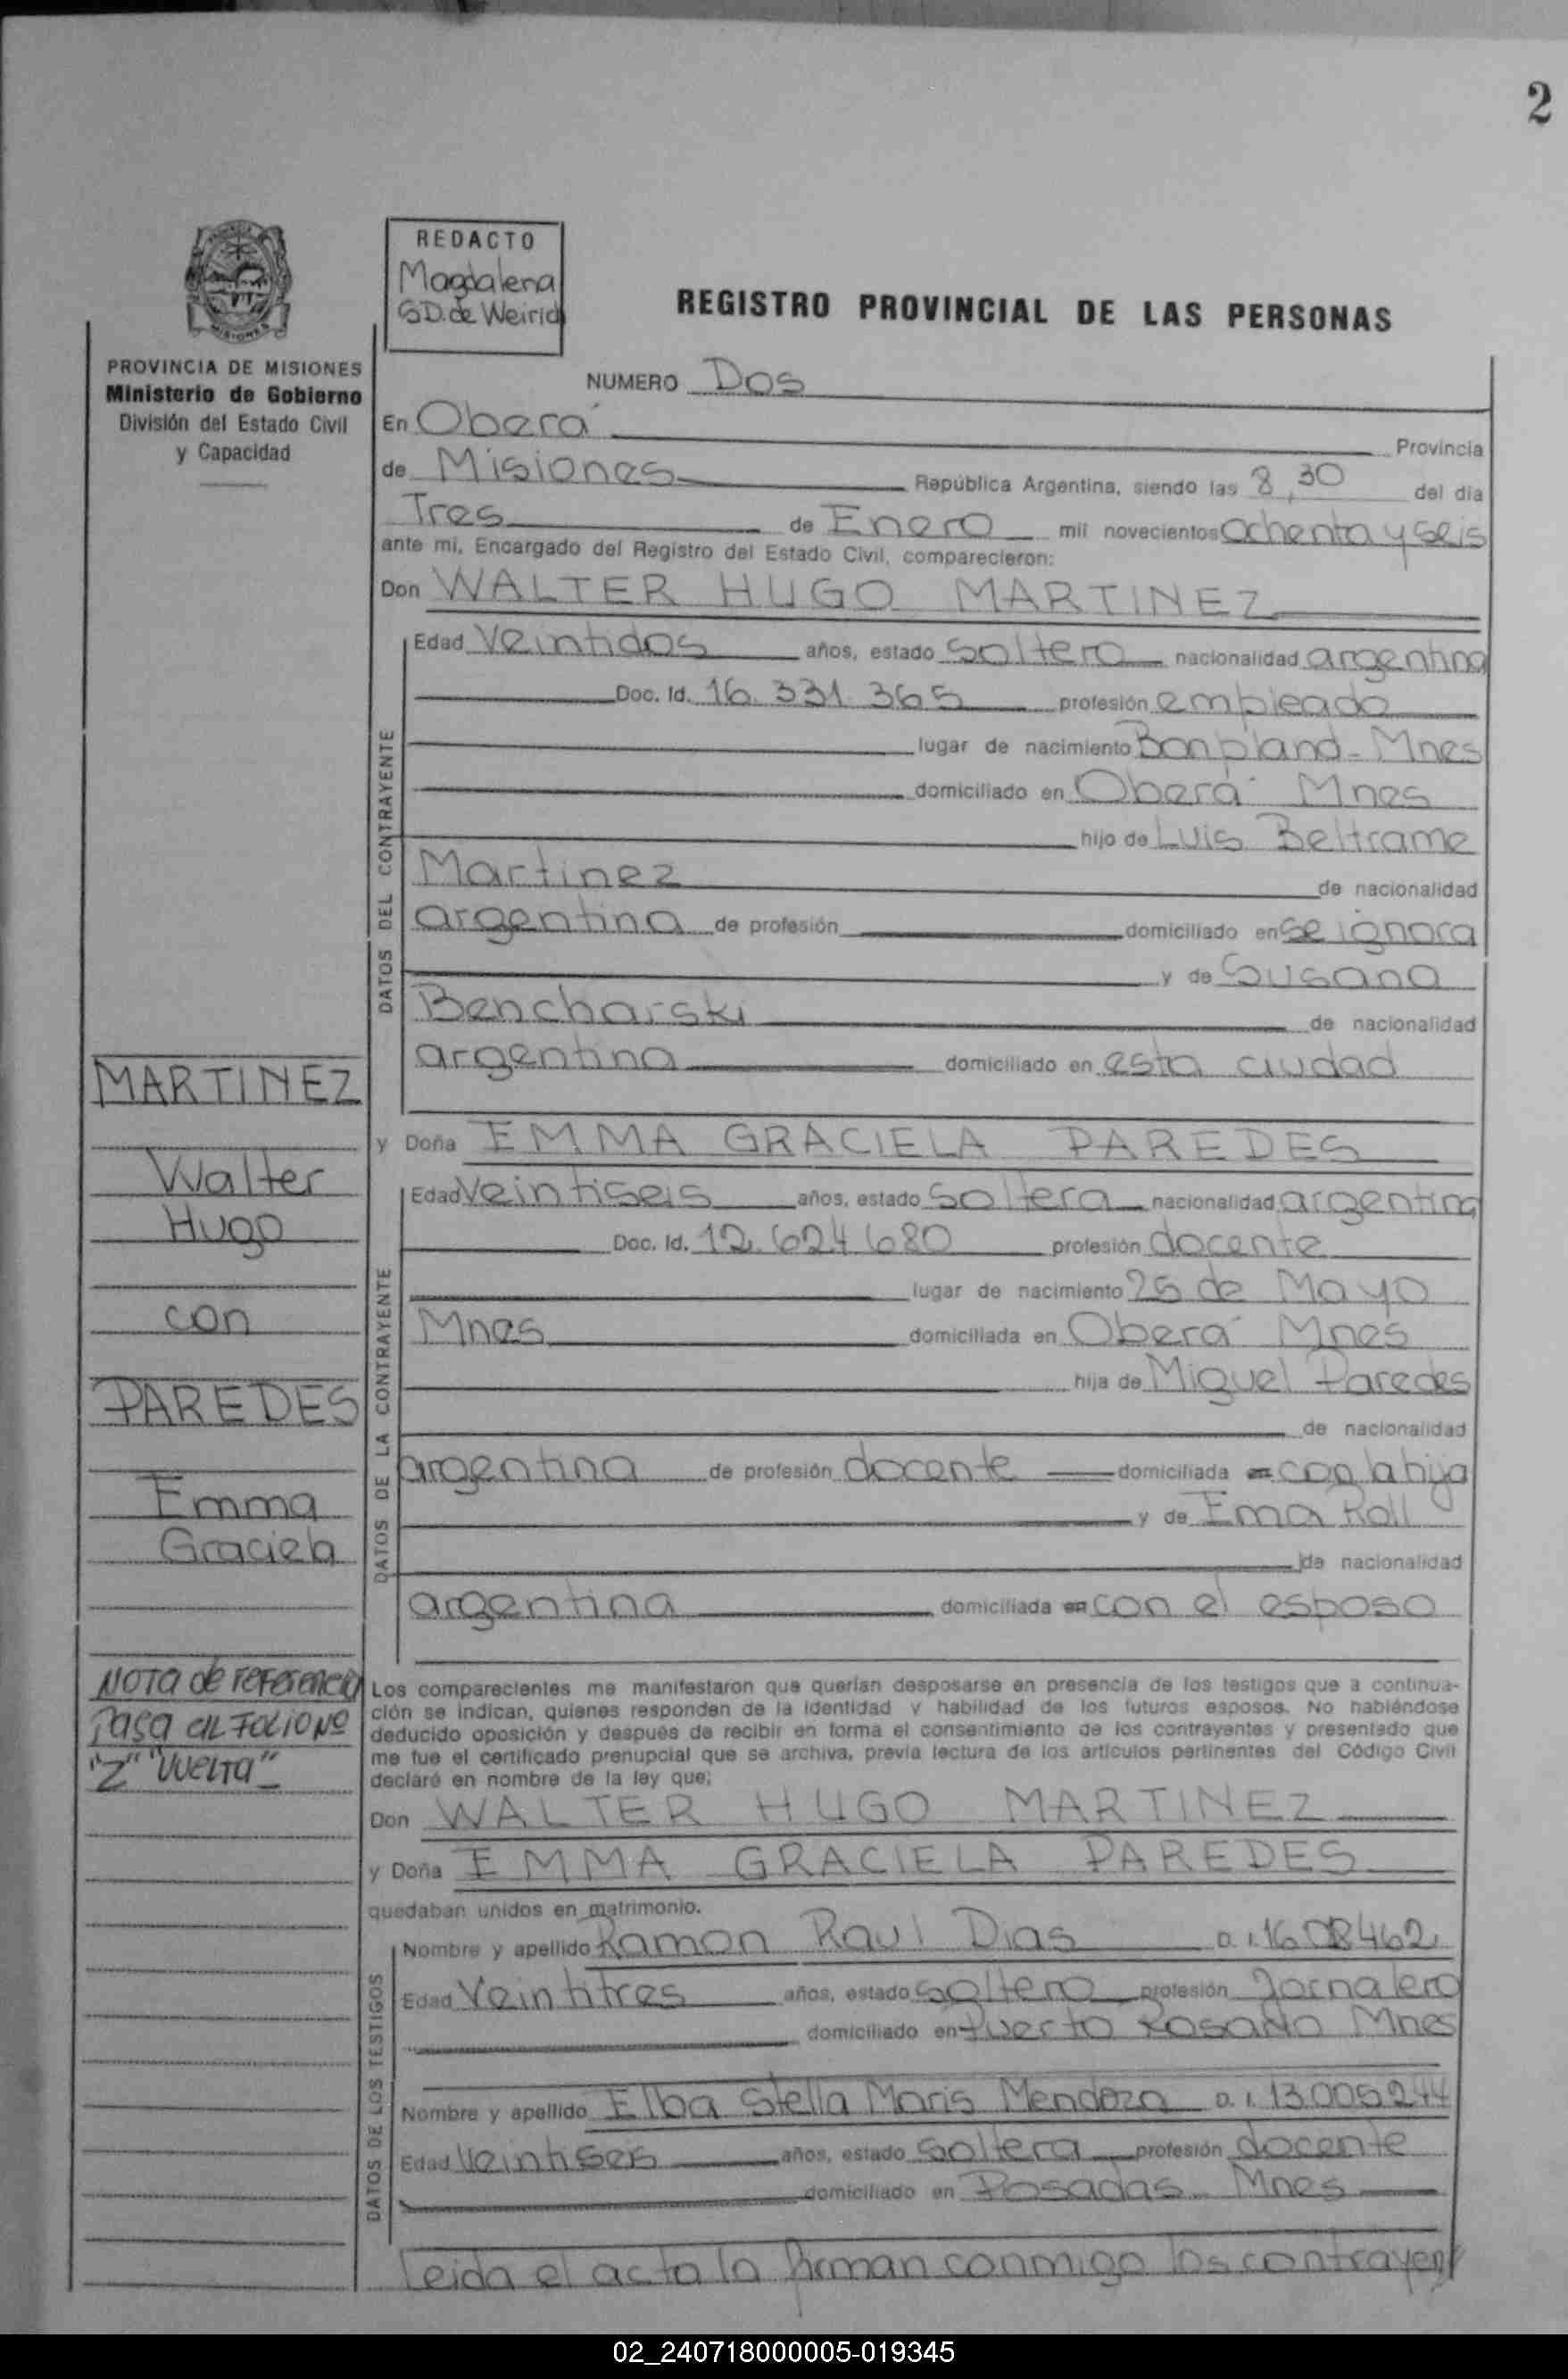 2
REDACTO
Magdalena
SD. de Weirich
REGISTRO PROVINCIAL DE LAS PERSONAS
PROVINCIA DE MISIONES
Ministerio de Gobierno
División del Estado Civil
y Capacidad
NUMERO Dos
En Oberá Provincia
de Misiones República Argentina, siendo las 8,30 del día
Tres de Enero mil novecientos ochenta y seis
ante mí, Encargado del Registro del Estado Civil, comparecieron:
Don WALTER HUGO MARTINEZ
DATOS DEL CONTRAYENTE
Edad Veintidos años, estado soltero nacionalidad argentina
Doc. Id. 16.331.365 profesión empleado
lugar de nacimiento Bonpland - Mnes
domiciliado en Oberá Mnes
hijo de Luis Beltrame
Martinez de nacionalidad
argentina de profesión domiciliado en se ignora
y de Susana
Bencharski de nacionalidad
argentina domiciliado en esta ciudad
y Doña EMMA GRACIELA PAREDES
DATOS DE LA CONTRAYENTE
Edad Veintiseis años, estado soltera nacionalidad argentina
Doc. Id. 12.624.680 profesión docente
lugar de nacimiento 25 de Mayo
Mnes domiciliada en Oberá Mnes
hija de Miguel Paredes
de nacionalidad
argentina de profesión docente domiciliada en con la hija
y de Ema Roll
de nacionalidad
argentina domiciliada en con el esposo
MARTINEZ
Walter
Hugo
con
PAREDES
Emma
Graciela
NOTA de referencia
Pasa al Folio Nº
"2" "Vuelta"
Los comparecientes me manifestaron que querían desposarse en presencia de los testigos que a continua-
ción se indican, quienes responden de la identidad y habilidad de los futuros esposos. No habiéndose
deducido oposición y después de recibir en forma el consentimiento de los contrayentes y presentado que
me fue el certificado prenupcial que se archiva, previa lectura de los artículos pertinentes del Código Civil
declaré en nombre de la ley que:
Don WALTER HUGO MARTINEZ
y Doña EMMA GRACIELA PAREDES
quedaban unidos en matrimonio.
DATOS DE LOS TESTIGOS
Nombre y apellido Ramon Raul Dias D. I.
Edad Veintitres años, estado soltero profesión Jornalero
domiciliado en Puerto Rosario Mnes
Nombre y apellido Elba Stella Maris Mendoza D. I. 13.005.244
Edad Veintiseis años, estado soltera profesión docente
domiciliado en Posadas Mnes
Leida el acta la firman conmigo los contrayen
02_240718000005-019345